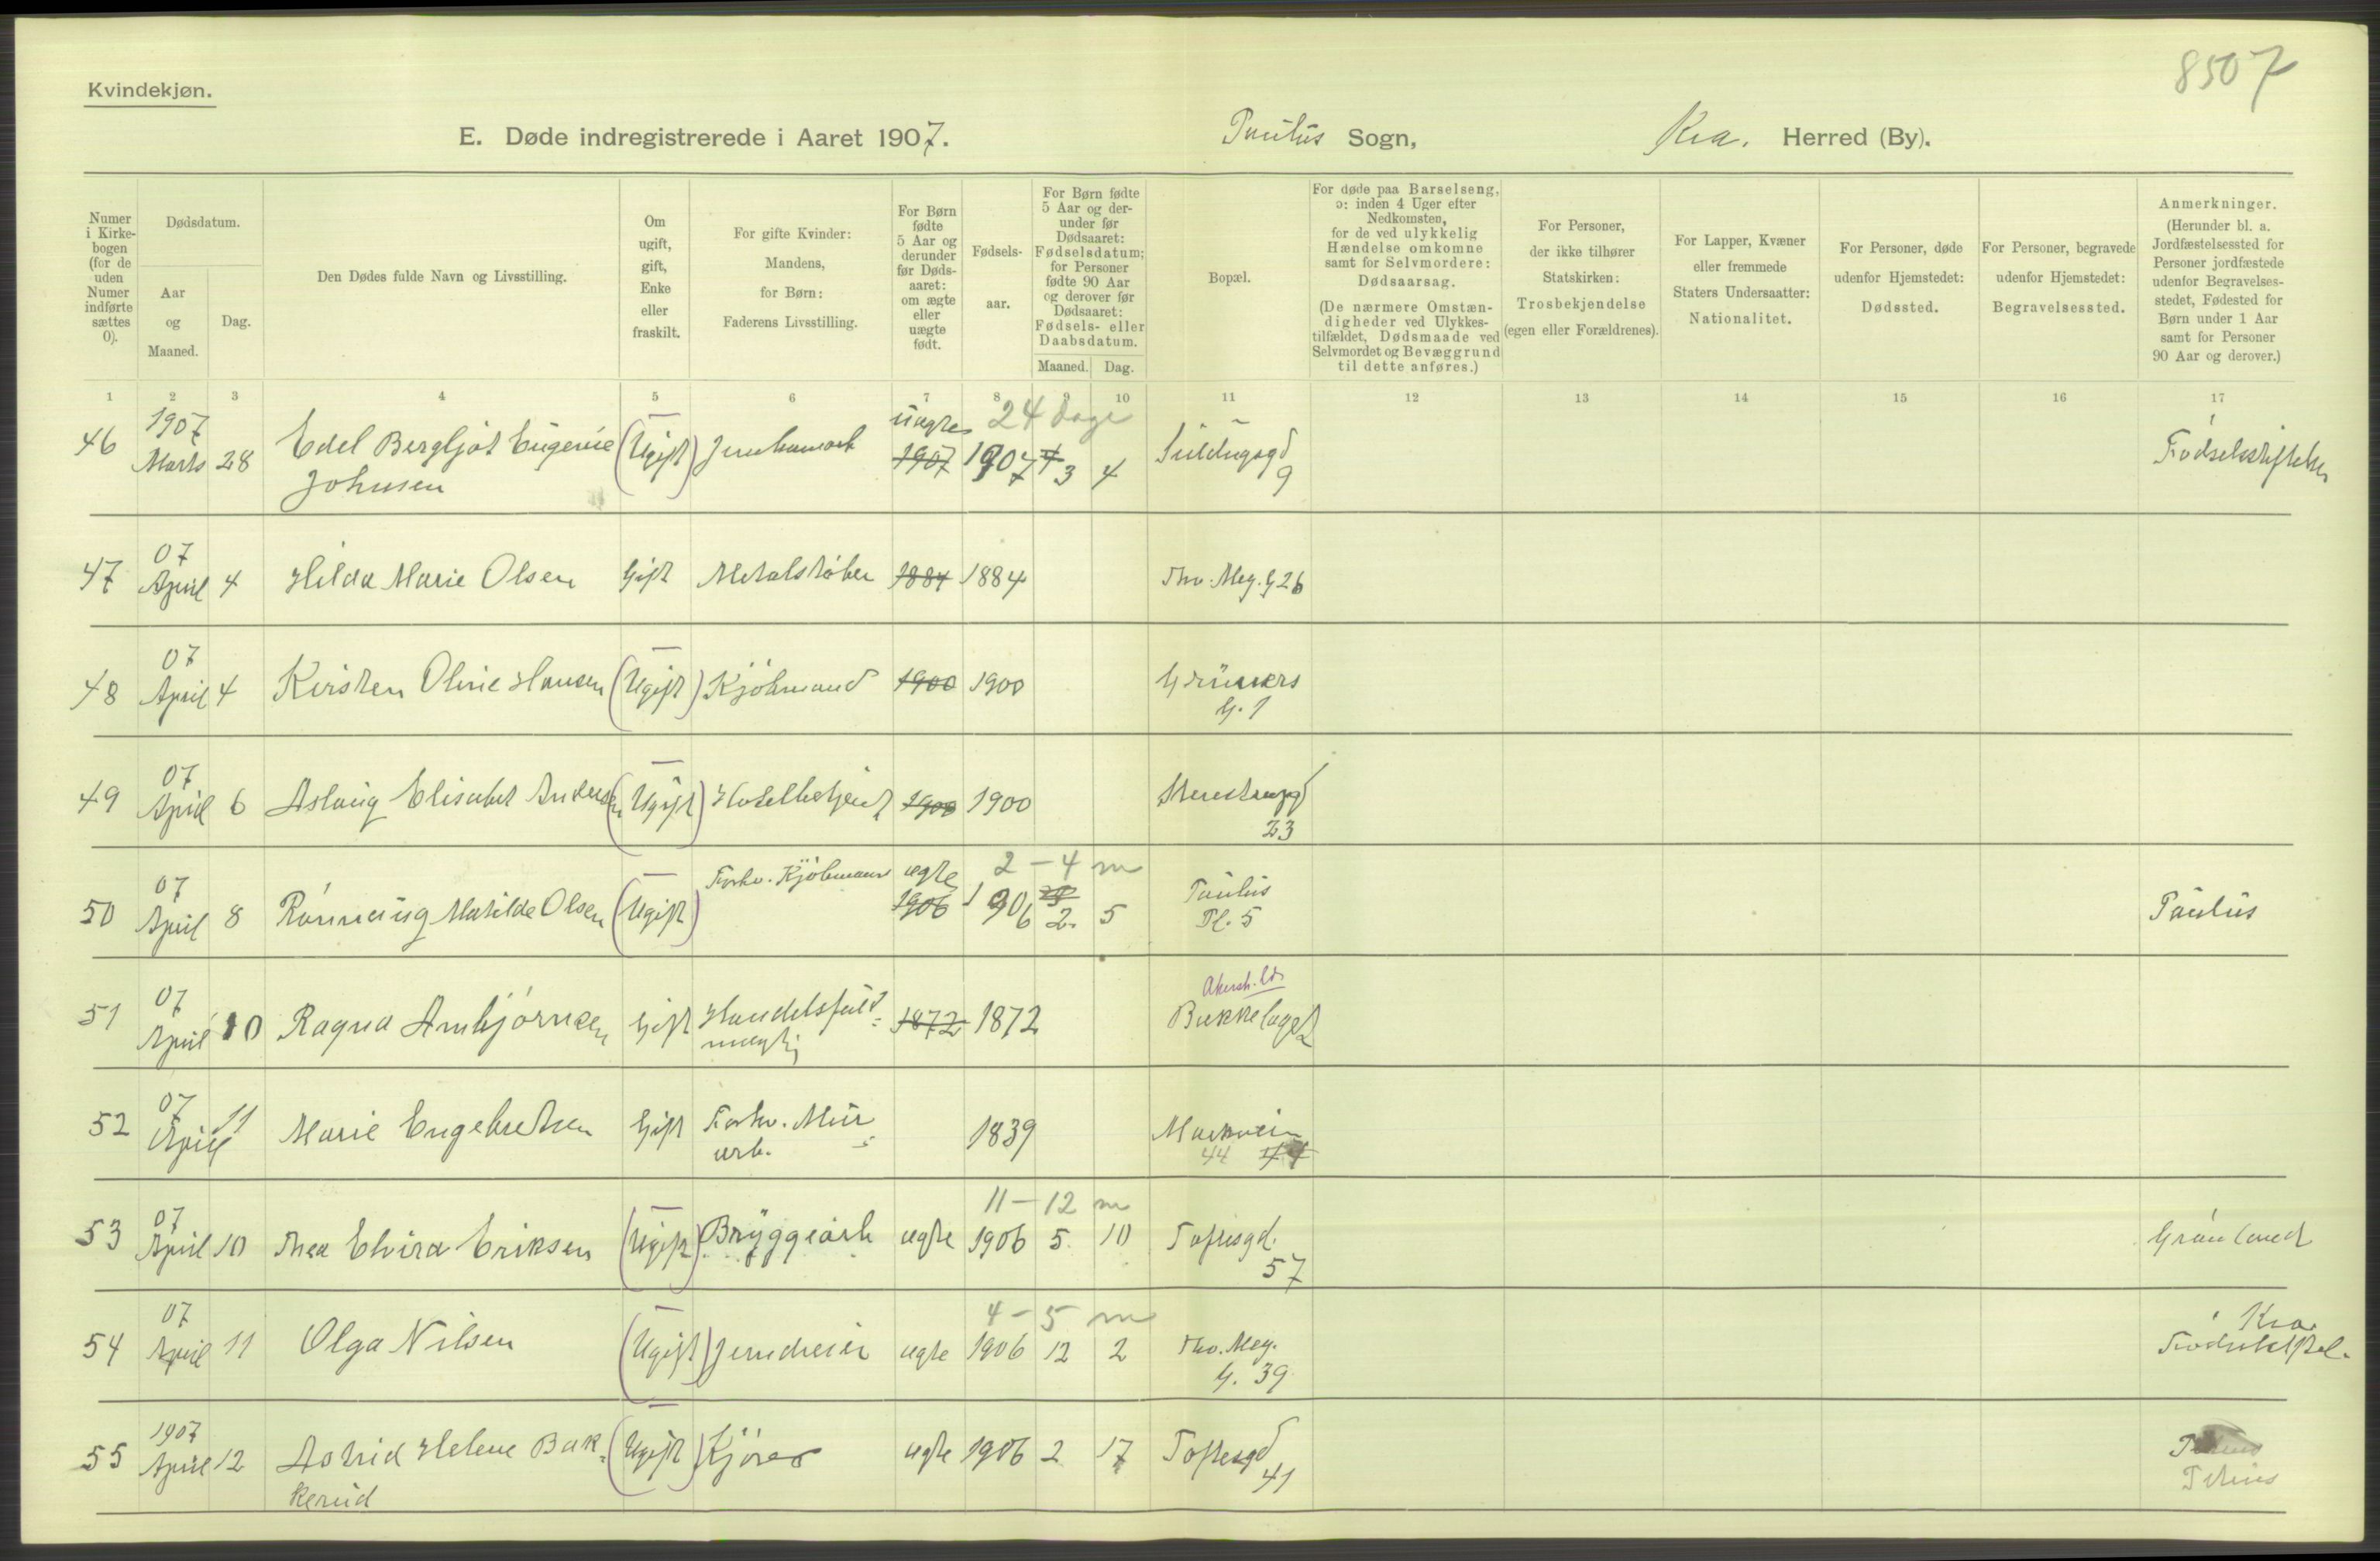 8507
Kvindekjøn.
E. Døde indregistrerede i Aaret 1907. Paulus Sogn, Kra. Herred (By).
Numer i Kirkebogen (for de uden Numer indførte sættes 0).
Dødsdatum.
Aar og Maaned.
Dag.
Den Dødes fulde Navn og Livsstilling.
Om ugift, gift, Enke eller fraskilt.
For gifte Kvinder: Mandens, for Børn: Faderens Livsstilling.
For Børn fødte 5 Aar og derunder før Dødsaaret: om ægte eller uægte født.
Fødselsaar.
For Børn fødte 5 Aar og derunder før Dødsaaret: Fødselsdatum; for Personer fødte 90 Aar og derover før Dødsaaret: Fødsels- eller Daabsdatum.
Maaned. Dag.
Bopæl.
For døde paa Barselseng, ɔ: inden 4 Uger efter Nedkomsten, for de ved ulykkelig Hændelse omkomne samt for Selvmordere: Dødsaarsag.
(De nærmere Omstændigheder ved Ulykkestilfældet, Dødsmaade ved Selvmordet og Bevæggrund til dette anføres.)
For Personer, der ikke tilhører Statskirken: Trosbekjendelse (egen eller Forældrenes).
For Lapper, Kvæner eller fremmede Staters Undersaatter: Nationalitet.
For Personer, døde udenfor Hjemstedet: Dødssted.
For Personer, begravede udenfor Hjemstedet: Begravelsessted.
Anmerkninger.
(Herunder bl. a. Jordfæstelsessted for Personer jordfæstede udenfor Begravelsesstedet, Fødested for Børn under 1 Aar samt for Personer 90 Aar og derover.)
1 2 3 4 5 6 7 8 9 10 11 12 13 14 15 16 17
1907 uægte 24 dage
46 Marts 28 Edel Bergljot Eugenie (Ugift) 1907 1907 4 3 4
Johnsen 9 Fødselsstiftelsen
07
47 April 4 Hilda Marie Olsen Gift Metalstøber 1884 1884 Thv. Mey. G 26
07
48 April 4 Kirsten Oline Hansen (Ugift) Kjøbmand 1900 1900 Grüners
G. 1
07
49 April 6 Aslaug Elisabet Andersen (Ugift) Hotelbetjent 1900 1900 Steenstrupgd
23
07 Forhv. Kjøbmand ægte 2 – 4 m
50 April 8 Rønnaug Matilde Olsen (Ugift) 1906 1906 2. 5 Paulus Pl. 5 Paulus
07 Akersh.
51 April 10 Ragna Arnbjørnsen Gift Handelsfuld- 1872 1872 Bækkelaget
mægtig
07
52 April 11 Marie Engebretsen Gift Forhv. Mur- 1839 Markvein
arb. 44 44
07 11 – 12 m
53 April 10 Thea Elvira Eriksen (Ugift) Bryggearb ægte 1906 5. 10 Toftesgd. Grønland
57
07 4 – 5 m Kra.
54 April 11 Olga Nilsen (Ugift) Jerndreier ægte 1906 12 2 Thv. Mey. Fødselsstel.
G. 39
1907
55 April 12 Astrid Helene Bak- (Ugift) Kjører ægte 1906 2 17 Toftesgd
kerud 41 Petrus